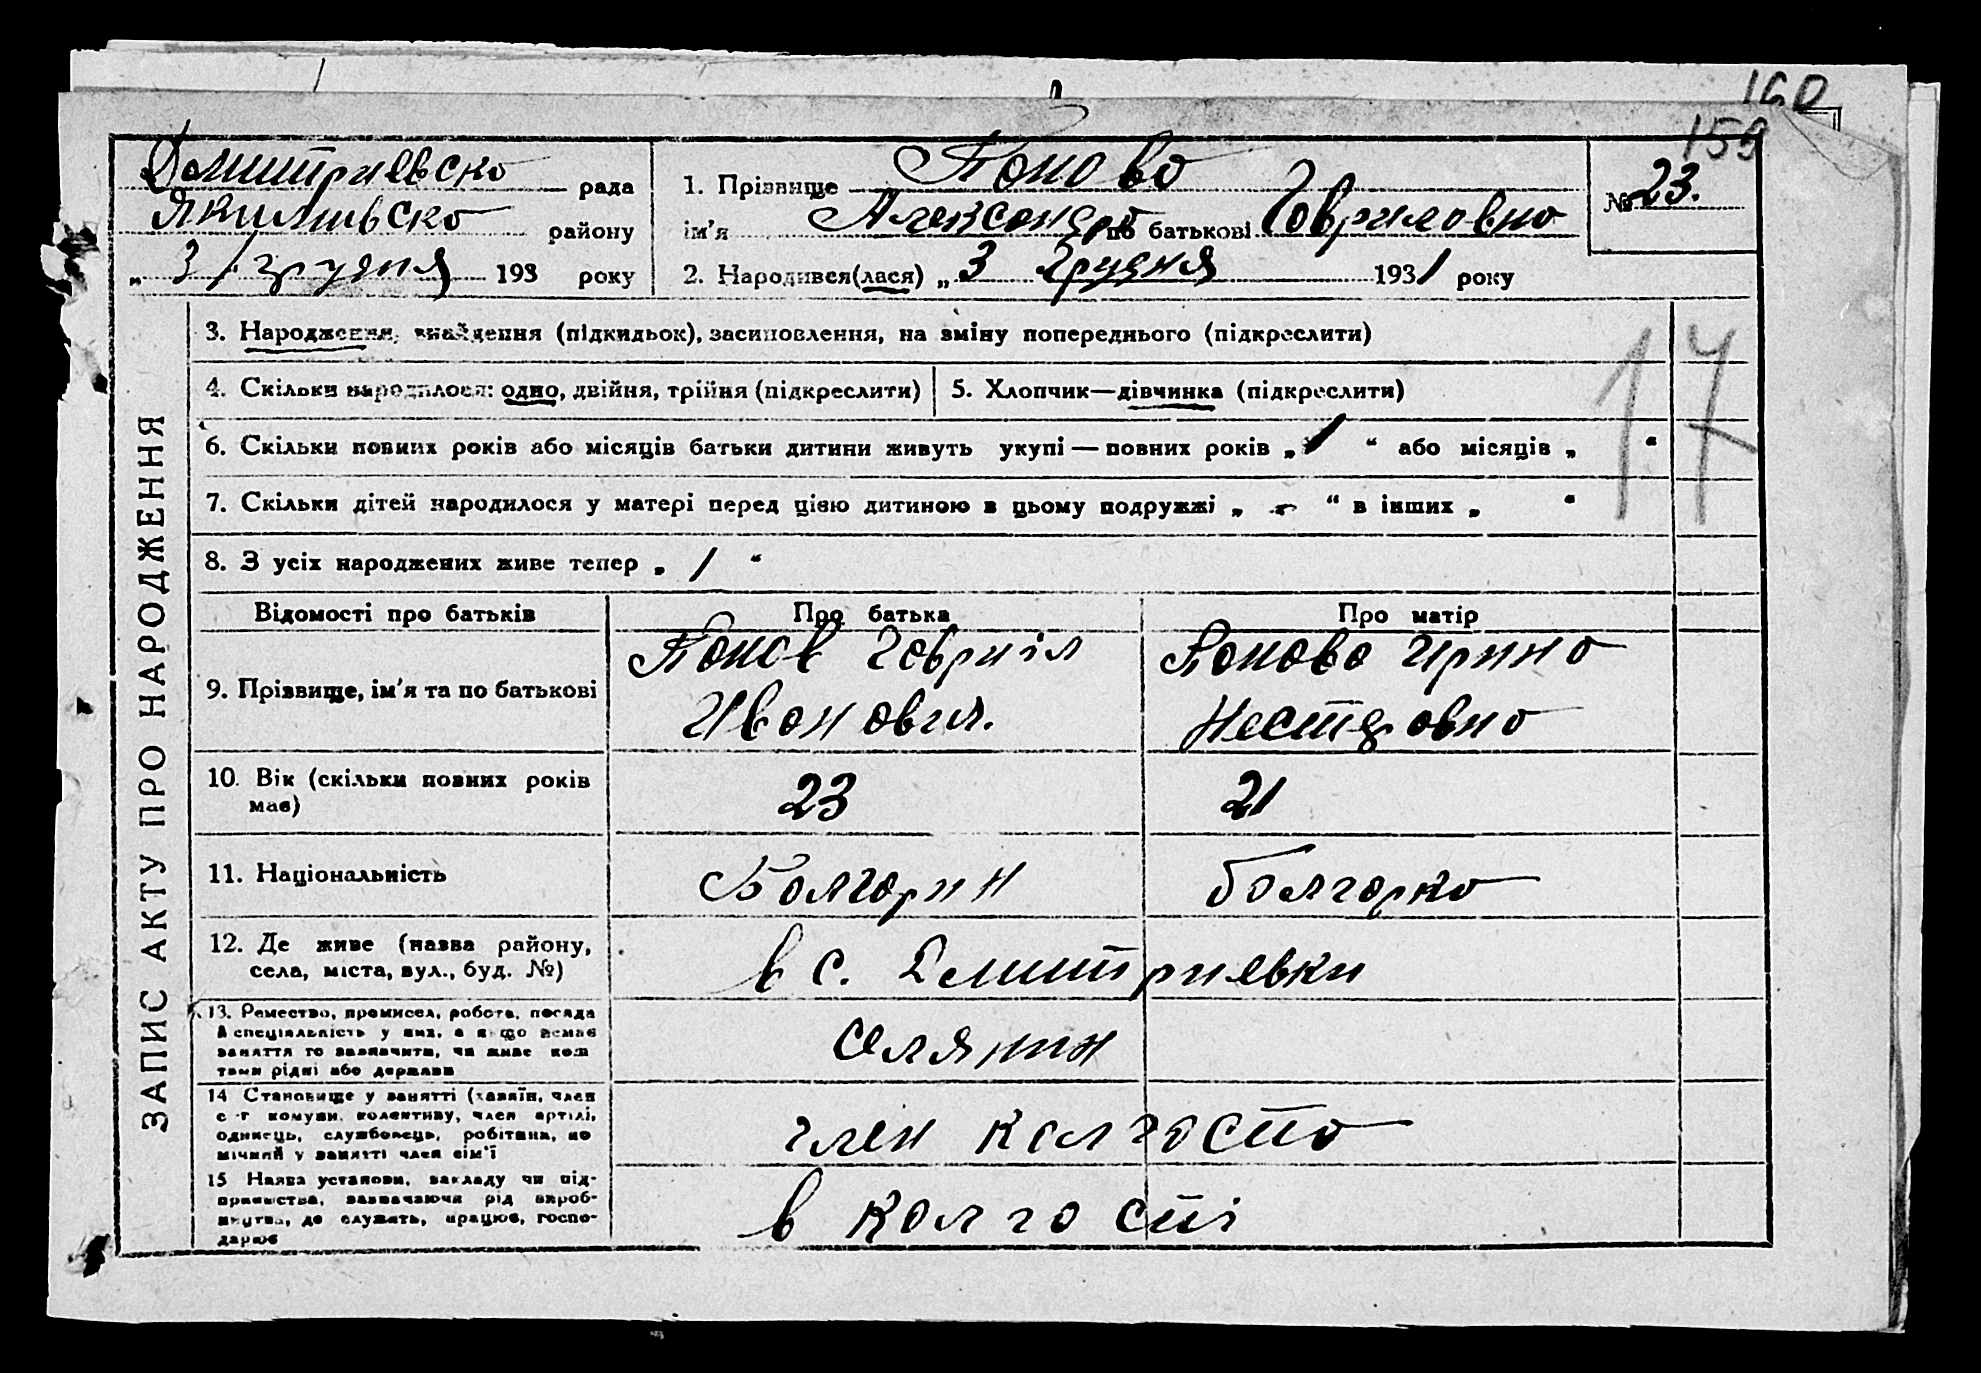 160
159
Дмитриевска рада
Якимивска району
„ 3 " грудня 193 року
1. Прізвище Попова
ім'я Александра по батькові Гавриловна
№ 23.
2. Народився(лася) „ 3 грудня 1931 року
3. Народження, знайдення (підкидьок), засиновлення, на зміну попереднього (підкреслити)
4. Скільки народилося: одно, двійня, трійня (підкреслити) 5. Хлопчик—дівчинка (підкреслити)
17
6. Скільки повних років або місяців батьки дитини живуть укупі — повних років „ 1 " або місяців „ "
7. Скільки дітей народилося у матері перед цією дитиною в цьому подружжі „ - " в інших „ "
8. З усіх народжених живе тепер „ 1 "
Відомості про батьків Про батька Про матір
9. Прізвище, ім'я та по батькові
Попов Гавриіл Попова Ирина
Иванович. Нестеровна
10. Вік (скільки повних років має)
23 21
11. Національність Болгарин болгарка
12. Де живе (назва району,
села, міста, вул., буд. №)
в с. Дмитриевки
13. Ремество, промисел, робота, посада
й спеціальність у них, а якщо немає
заняття то зазначити, чи живе кош
тами рідні або держави
селянин
14 Становище у занятті (хазяїн, член
с-г комуни, колективу, член артілі,
одинець, службовець, робітник, по
мічний у занятті член сім'ї
член колгоспа
15 Назва установи, закладу чи під-
приємства, зазначаючи рід вироб-
ництва, де служить, працює, госпо-
дарює
в колгоспі
ЗАПИС АКТУ ПРО НАРОДЖЕННЯ